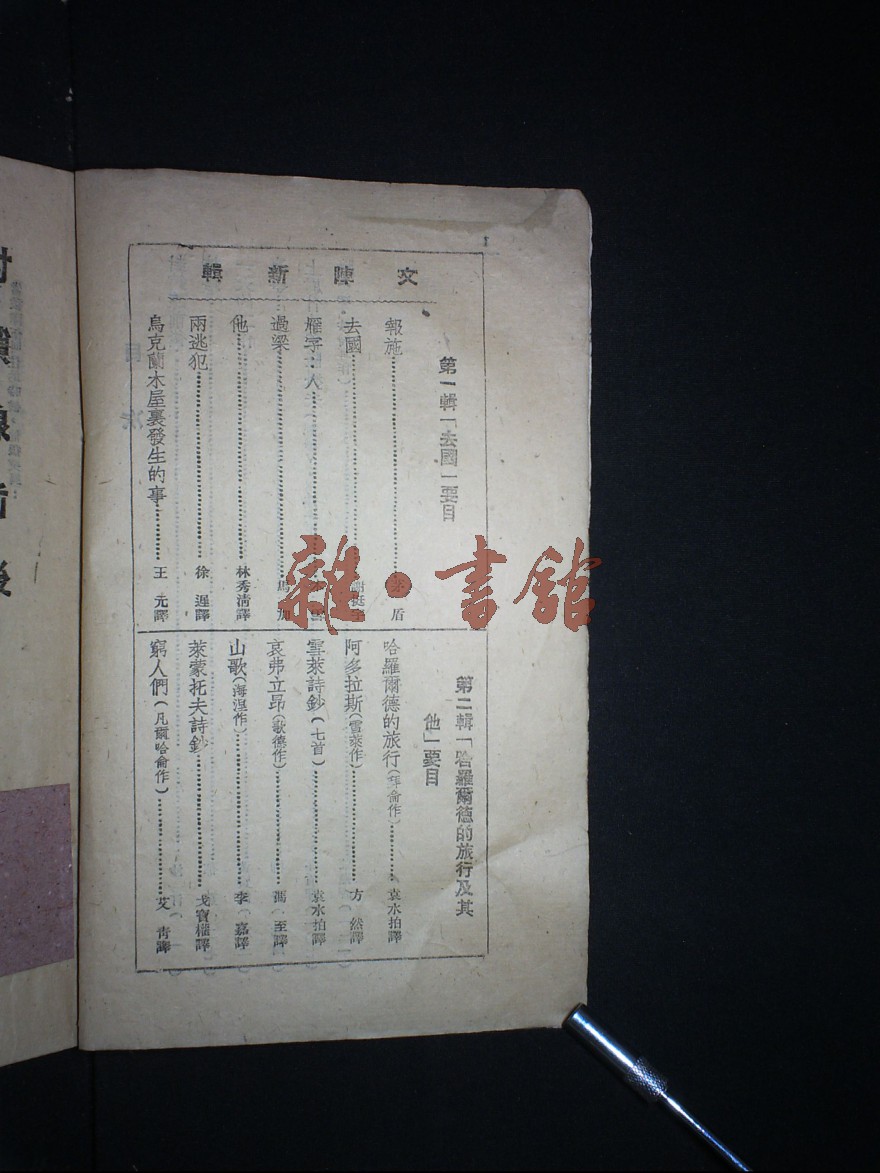 文陣新輯
第一輯「去國」要目
報施……茅盾
去國……
雁字∶人……
過梁……馬加
他……林秀清譯
兩逃犯……徐遲譯
烏克蘭木屋裏發生的事……王元譯
第二輯「哈羅爾德的旅行及其
他」要目
哈羅爾德的旅行(拜倫作)……袁水拍譯
阿多拉斯(雪萊作)……方然譯
雪萊詩鈔(七首)……袁水拍譯
哀弗立昂(歌德作)……馮至譯
山歌(海涅作)……李嘉譯
萊蒙托夫詩鈔……戈寶權譯
窮人們(凡爾哈侖作)……艾青譯
雜·書館